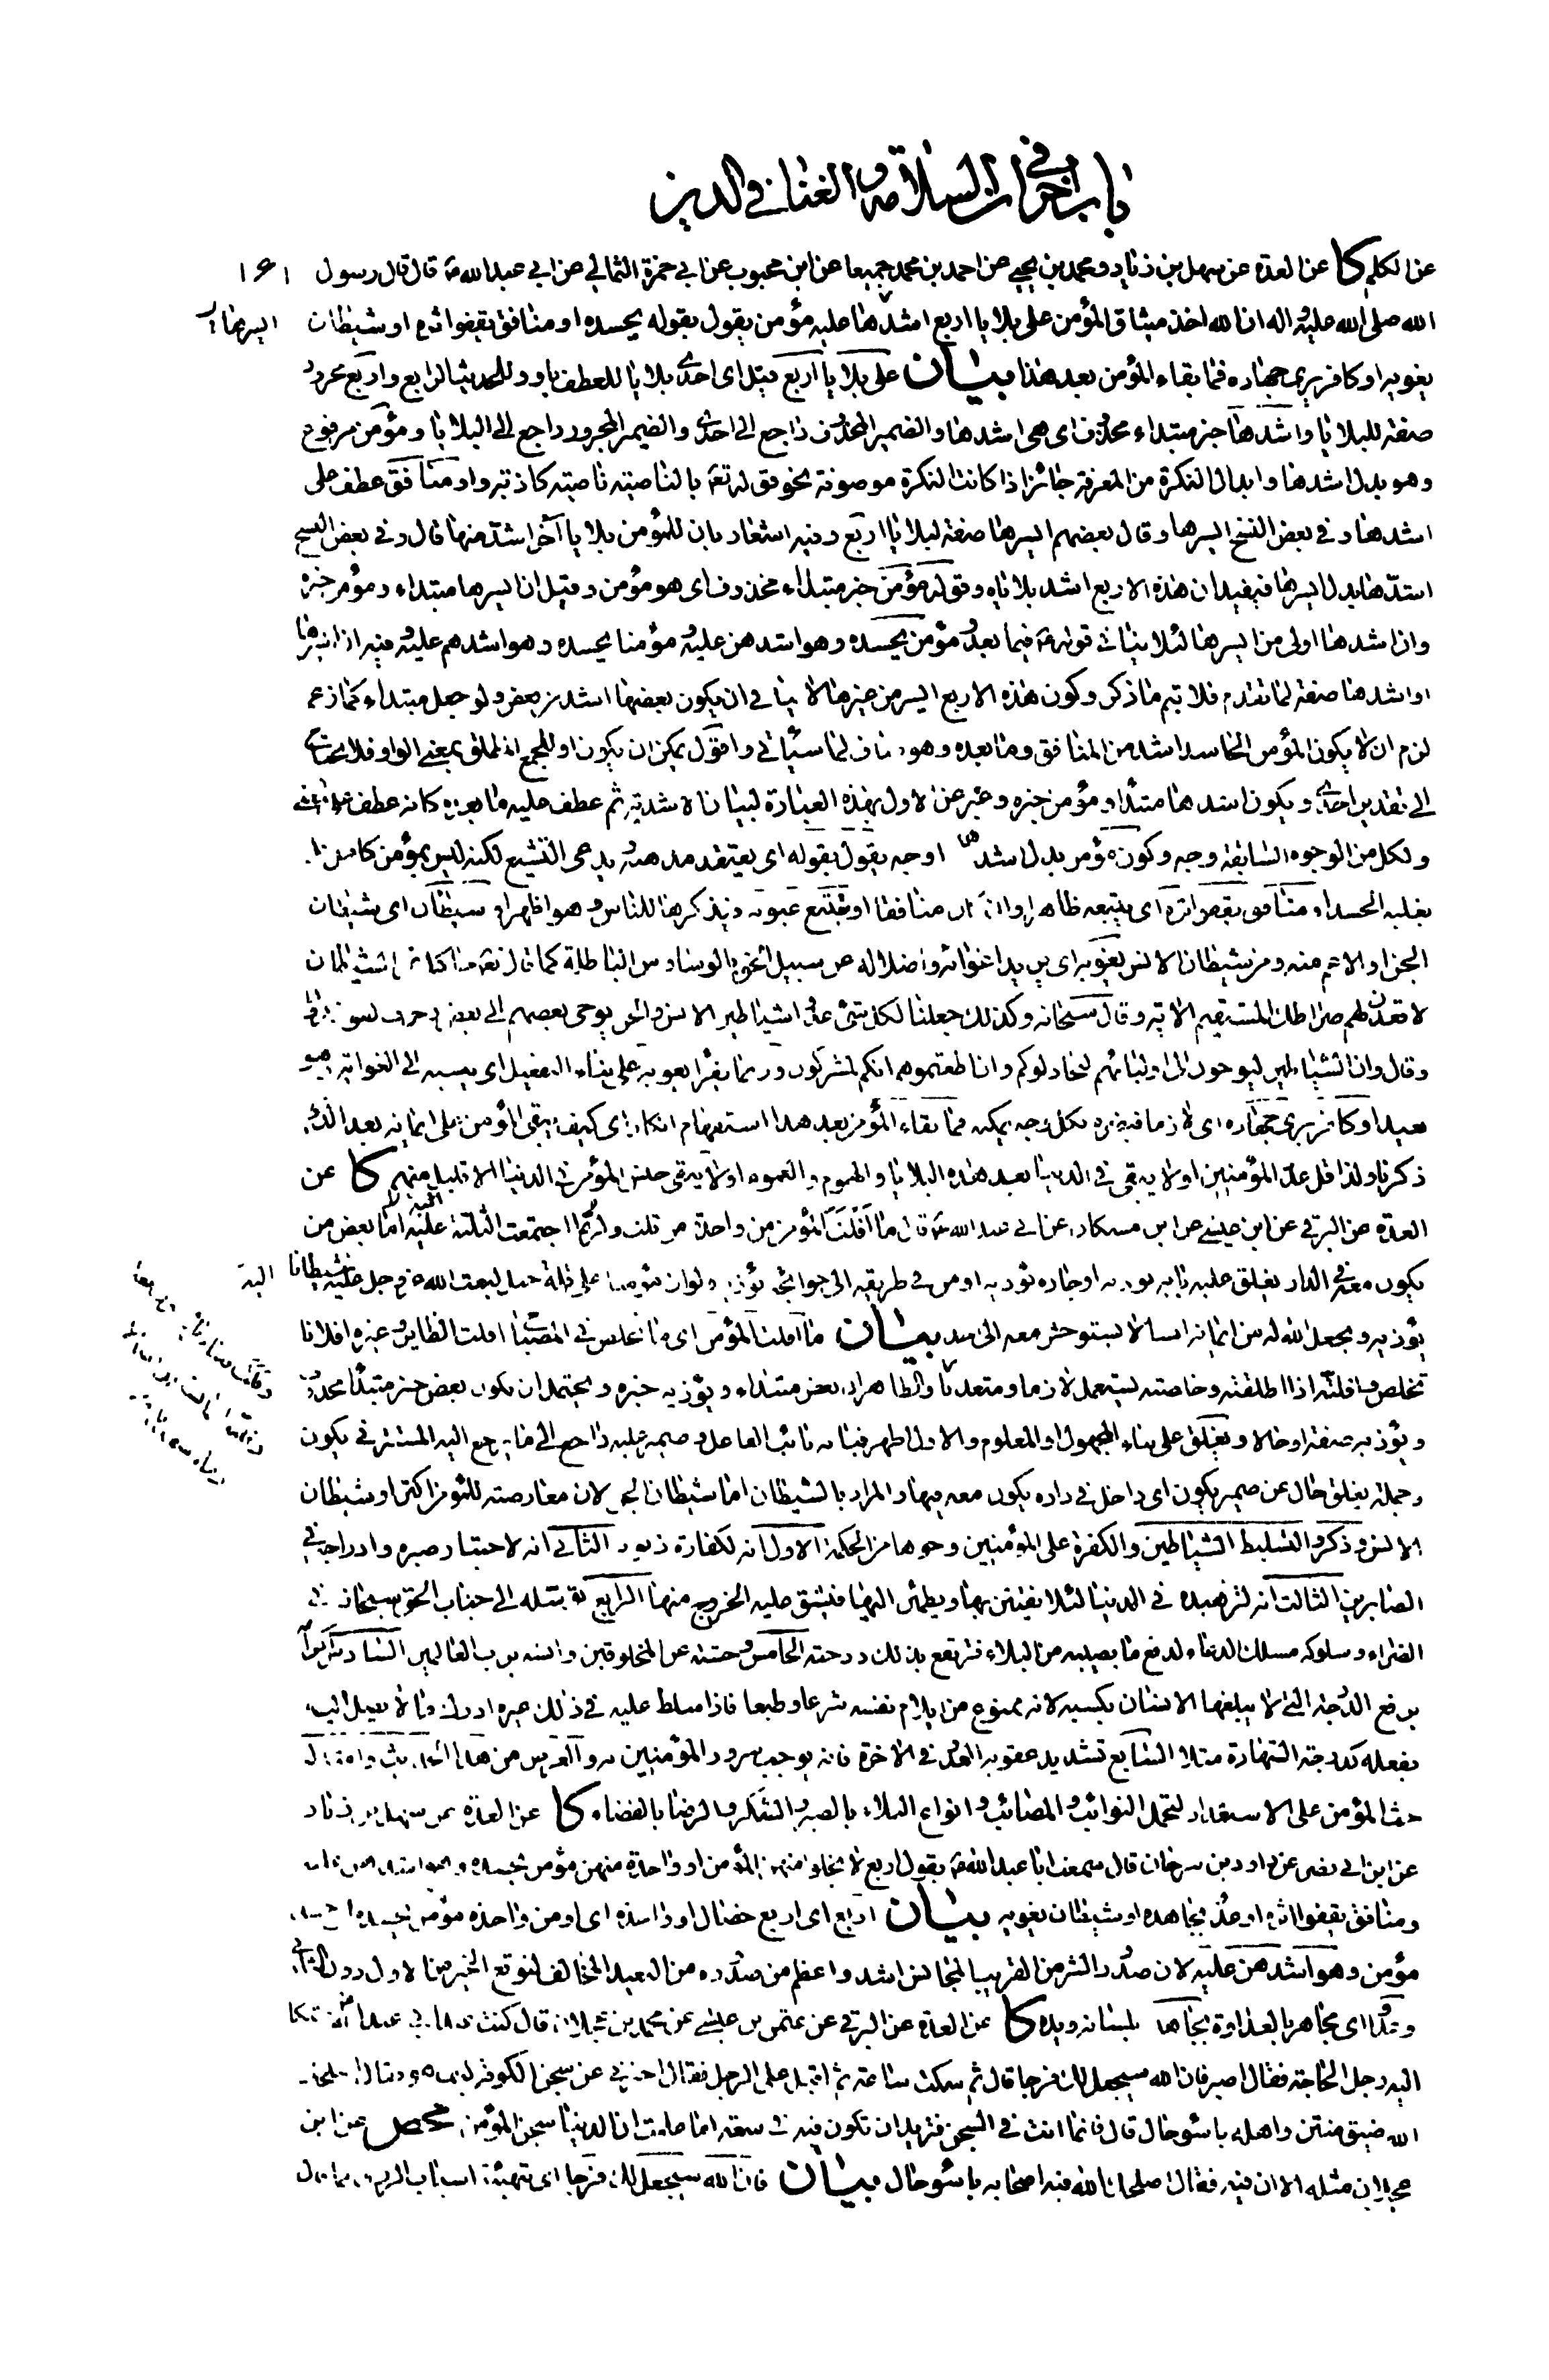 باب آخر في ان السلامة و الغنا في الدين
عن الكليني كا عن العدة عن سهل بن زياد و محمد بن يحيى عن احمد بن محمد جميعا عن ابن محبوب عن ابي حمزة الثمالي عن ابي عبد الله ع قال قال رسول
الله صلى الله عليه و اله ان الله اخذ ميثاق المؤمن على بلايا اربع اشدها عليه مؤمن يقول بقوله يحسده او منافق يقفو اثره او شيطان
ايسرها
يغويه او كافر يرى جهاده فما بقاء المؤمن بعد هذا بيان على بلايا اربع قيل اى احدى بلايا للعطف باو و للحديث الرابع و اربع مجرور
صفة للبلايا و اشدها خبر مبتداء محذوف اى هى اشدها و الضمير المحذوف راجع الى احدى و الضمير المجرور راجع الى البلايا و مؤمن مرفوع
و هو بدل اشدها و ابدال النكرة من المعرفة جائز اذا كانت النكرة موصوفة نحو قوله تعا بالناصية ناصية كاذبة و او منافق عطف على
اشدها و في بعض النسخ ايسرها و قال بعضهم ايسرها صفة لبلايا اربع و فيه اشعار بان للمؤمن بلايا آخر اشد منها قال و في بعض النسخ
اشدها بدل ايسرها فيفيد ان هذه الاربع اشد بلاياه و قوله مؤمن خبر مبتداء محذوف اى هو مؤمن و قيل ان ايسرها مبتداء و مؤمن خبره
و ان اشدها اولى من ايسرها لئلا ينافى قوله ع فيما بعد و مؤمن يحسده و هو اشدهن عليه و مؤمنا يحسده و هو اشدهم عليه و فيه ان ايسرها
او اشدها صفة لما تقدم فلا يتم ما ذكر و كون هذه الاربع ايسر من غيرها لا ينافي ان يكون بعضها اشد من بعض و لو جعل مبتداء كما زعم
لزم ان لا يكون المؤمن الحاسد اشد من المنافق و ما بعده و هو مناف لما سيأتي و اقول يمكن ان يكون او للجمع المطلق بمعنى الواو فلا يحتاج
الى تقدير احدى و يكون اشدها مبتدأ و مؤمن خبره و عبر عن الاول بهذه العبارة لبيان الاشدية ثم عطف عليه ما بعده كانه عطف على المعنى
و لكل من الوجوه السابقة وجه و كون مؤمن بدل اشدها اوجه يقول بقوله اى يعتقد مذهبه و يدعى التشيع لكنه ليس بمؤمن كامل
يغلبه الحسد او منافق يقفو اثره اى يتبعه ظاهرا و ان كان منافقا او يتتبع عيوبه فيذكرها للناس و هو اظهر او شيطان اى شيطان
الجن او الاعم منه و من شيطان الانس يغويه اى يريد اغوائه و اضلاله عن سبيل الحق بالوساوس الباطلة كما قال تعا حاكيا عن الشيطان
لاقعدن لهم صراطك المستقيم الاية و قال سبحانه و كذلك جعلنا لكل نبى عدوا شياطين الانس و الجن يوحى بعضهم الى بعض زخرف القول
و قال و ان الشياطين ليوحون الى اوليائهم ليجادلوكم و ان اطعتموهم انكم لمشركون و ربما يقرأ يغويه على بناء التفعيل اى ينسبه الى الغواية و هو
بعيد او كافر يرى جهاده اى لازما فيضره بكل وجه يمكنه فما بقاء المؤمن بعد هذا استفهام انكار اى كيف يبقى المؤمن على ايمانه بعد الذى
ذكرنا و لذا قل عدد المؤمنين او لا يبقى في الدنيا بعد هذه البلايا و الهموم و الغموم او لا يبقى جنس المؤمن في الدنيا الا قليل منهم كا عن
العدة عن البرقي عن ابن عيسى عن ابن مسكان عن ابي عبد الله ع قال ما افلت المؤمن من واحدة من ثلث و لربما اجتمعت الثلثة عليه اما بعض من
يكون معه في الدار يغلق عليه بابه يؤذيه او جار يؤذيه او من في طريقه الى حوائجه يؤذيه و لو ان مؤمنا على قلة جبل لبعث الله عز و جل عليه شيطانا
اليه
يؤذيه و يجعل الله له من ايمانه انسا لا يستوحش معه الى احد بيان ما افلت المؤمن اى ما تخلص في المصباح افلت الطاير و غيره افلاتا
تخلص و افلته اذا اطلقته و خلصته يستعمل لازما و متعديا و الظاهر ان بعض مبتداء و يؤذيه خبره و يحتمل ان يكون بعض خبر مبتدأ محذوف
و يؤذيه صفة او حالا و يغلق على بناء المجهول او المعلوم و الاول اظهر فبابه نائب الفاعل و ضمير عليه راجع الى ما يرجع اليه المستتر في يكون
و جملة يغلق حال عن ضمير يكون اى داخل في داره يكون معه فيها و المراد بالشيطان اما شيطان الجن لان معارضته للمؤمن اكثر او شيطان
الانس و ذكروا لتسليط الشياطين و الكفرة على المؤمنين وجوها من الحكمة الاول انه لكفارة ذنوبه الثاني انه لاختبار صبره و ادراجه في
الصابرين الثالث انه لتزهيده في الدنيا لئلا يفتتن بها و يطمئن اليها فيشق عليه الخروج منها الرابع توسله الى جناب الحق سبحانه في
الضراء و سلوكه مسلك الدعاء لدفع ما يصيبه من البلاء فترتفع بذلك درجته الخامس وحشته عن المخلوقين و انسه برب العالمين السادس اكرامه
برفع الدرجة التي لا يبلغها الانسان بكسبه لانه ممنوع من ايلام نفسه شرعا و طبعا فاذا سلط عليه في ذلك غيره ادرك ما لا يصل اليه
بفعله كدرجة الشهادة مثلا السابع تشديد عقوبة العدو في الاخرة فانه يوجب سرور المؤمنين به و الغرض من هذا الحديث و امثاله
حث المؤمن على الاستعداد لتحمل النوائب و المصائب و انواع البلاء بالصبر و الشكر و الرضا بالقضاء كا عن العدة عن سهل بن زياد
عن ابن ابي نصر عن داود بن سرحان قال سمعت ابا عبد الله ع يقول اربع لا يخلو منهن المؤمن او واحدة منهن مؤمن يحسده و هو اشدهن عليه
و منافق يقفو اثره او عدو يجاهده او شيطان يغويه بيان اربع اى اربع خصال او واحدة اى او من واحدة مؤمن يحسده اى حسد
مؤمن و هو اشدهن عليه لان صدور الشر من القريب المجانس اشد و اعظم من صدوره من البعيد المخالف لتوقع الخير من الاول دون الثاني
و عدو اى مجاهر بالعداوة يجاهده بلسانه و يده كا عن العدة عن البرقي عن عثمن بن عيسى عن محمد بن عجلان قال كنت عند ابي عبد الله ع فشكا
اليه رجل الحاجة فقال اصبر فان الله سيجعل لك فرجا قال ثم سكت ساعة ثم اقبل على الرجل فقال اخبرني عن سجن الكوفة كيف هو فقال اصلحك
الله ضيق منتن و اهله باسوء حال قال فانما انت في السجن فتريد ان تكون فيه في سعة اما علمت ان الدنيا سجن المؤمن محص عن ابن
عجلان مثله الا ان فيه فقال اصلحك الله فيه اصحابه باسوء حال بيان فان الله سيجعل لك فرجا اى تهيئة اسباب الرزق